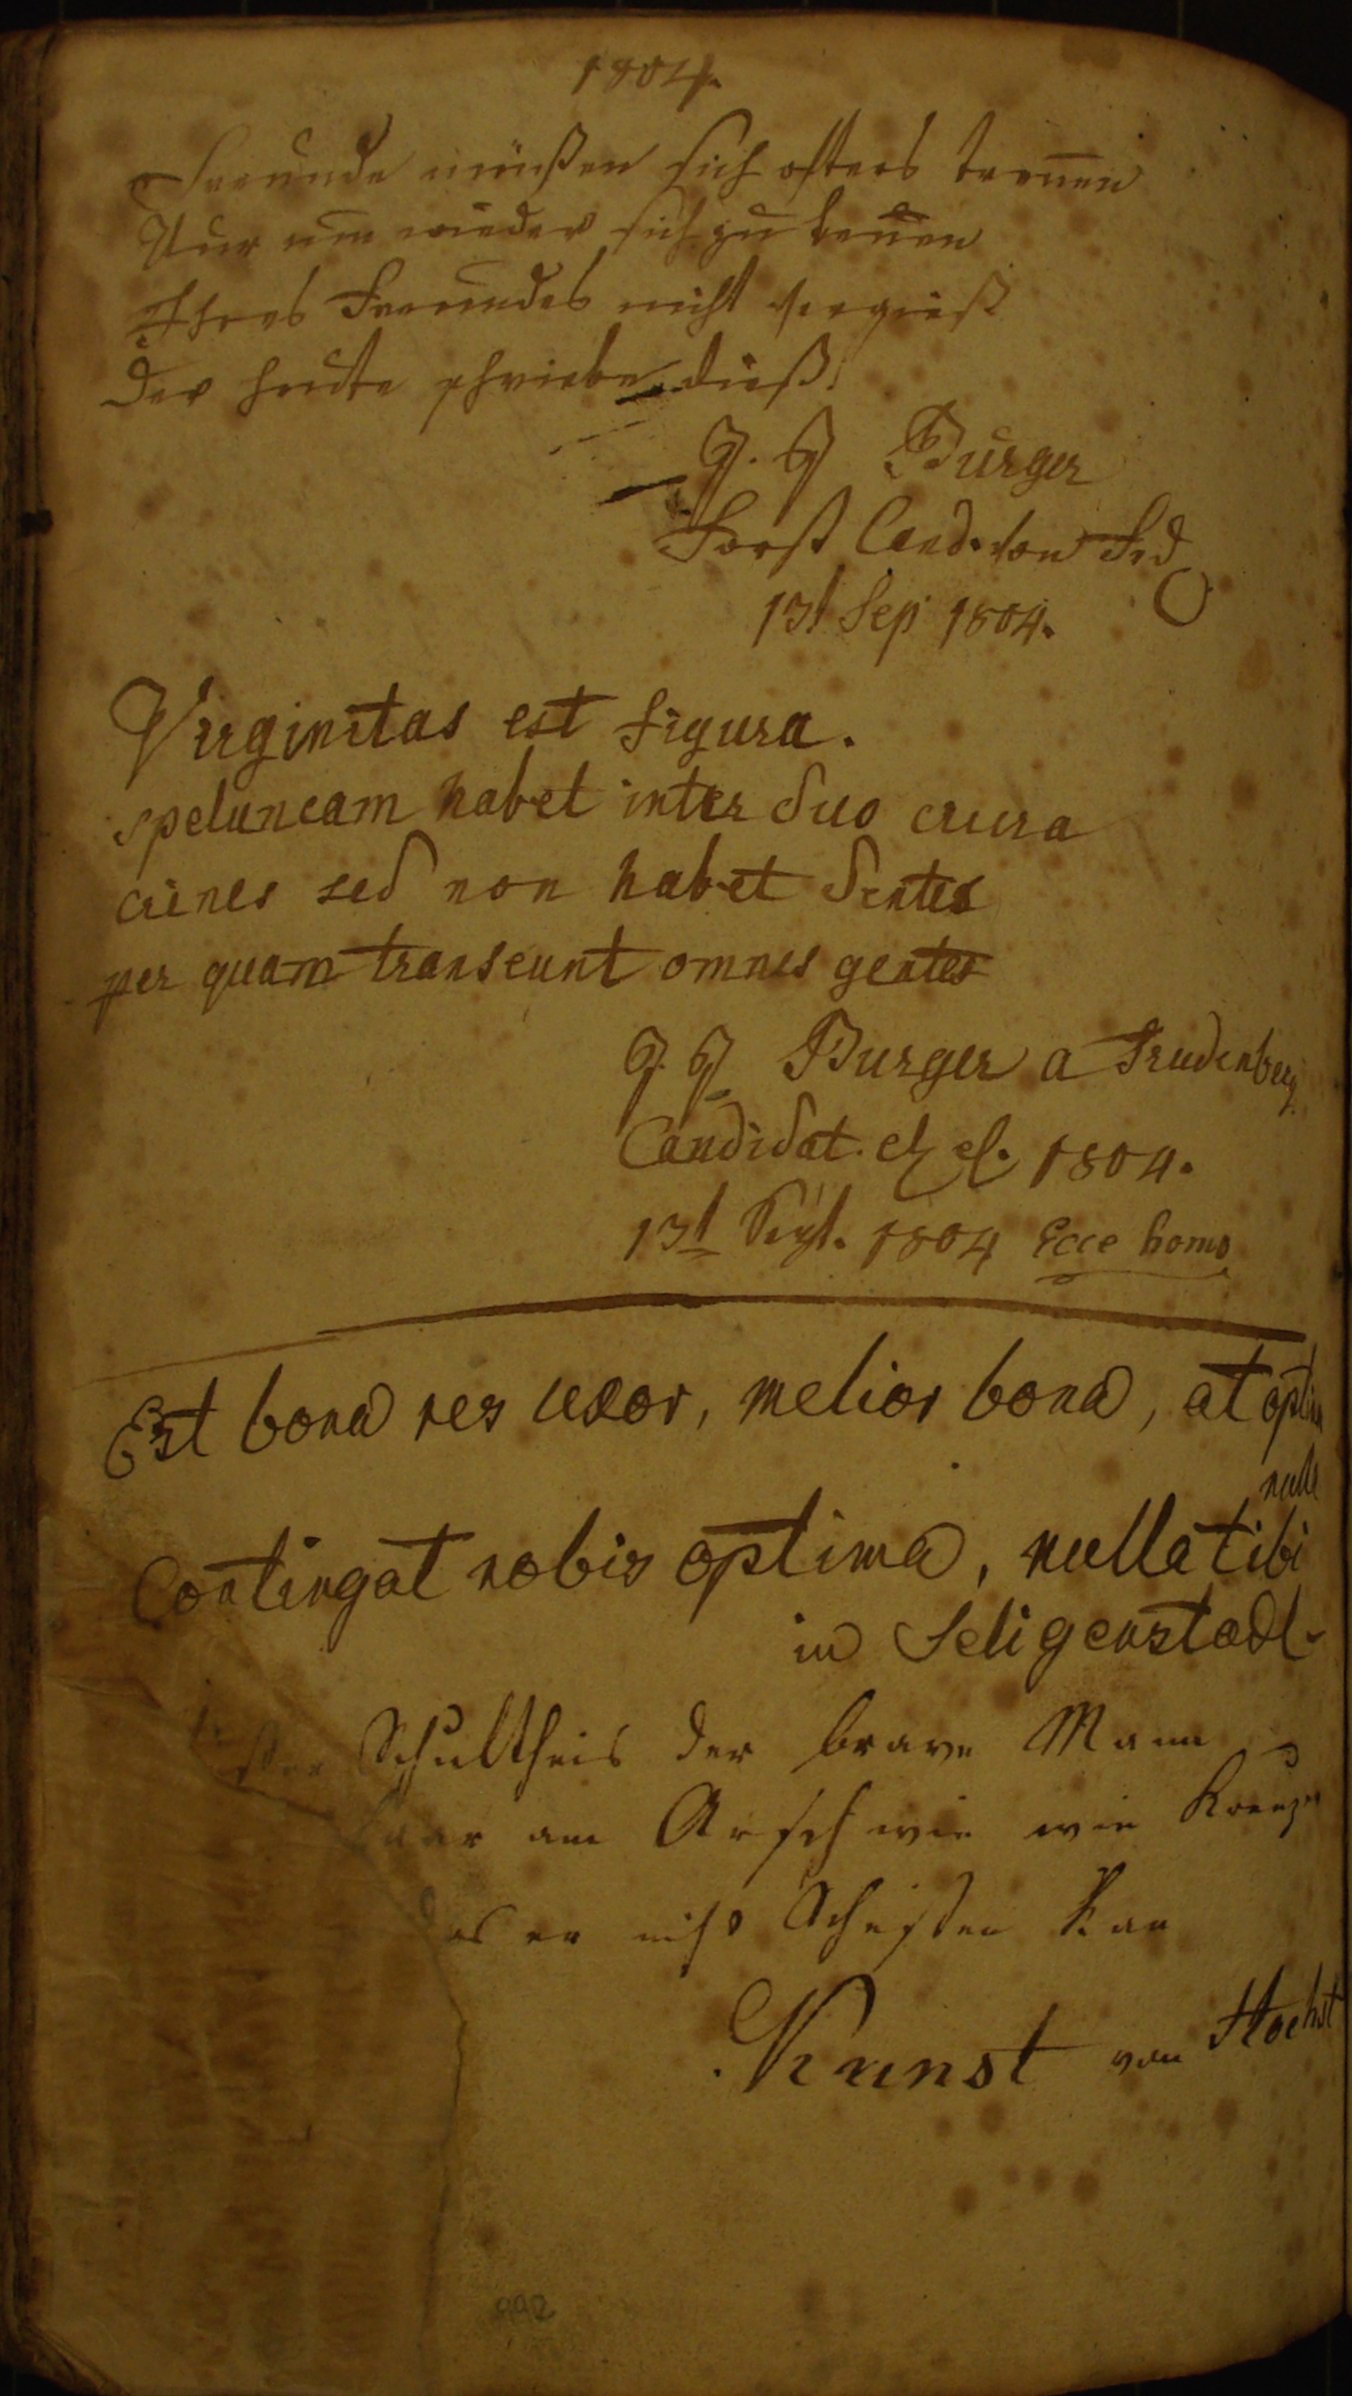 1804.
Freunde müßen sich ofters treñen
Nur um wieder sich zu keñen
Ihres Freundes nicht vergieß
der heute schriebe dieß.
J. J Burger
Forst Cand. von Frd
13t Sep 1804.
Virginitas est figura.
speluncam habet inter duo crura
crines sed non habet dentes
per quam transeunt omnes gentes
J. J Burger a Frudenberg
Candidat. 1804.
13t Sept. 1804 Ecce homo
Est bona res uxor, melior bona, at optima
nulla
Contingat nobis optima, nulla tibi
in Seligenstadt
Schultheis der brave Mann
Haar am Arsch wie wie
das er nicht Scheißen kan
Kunst von Hochst
992